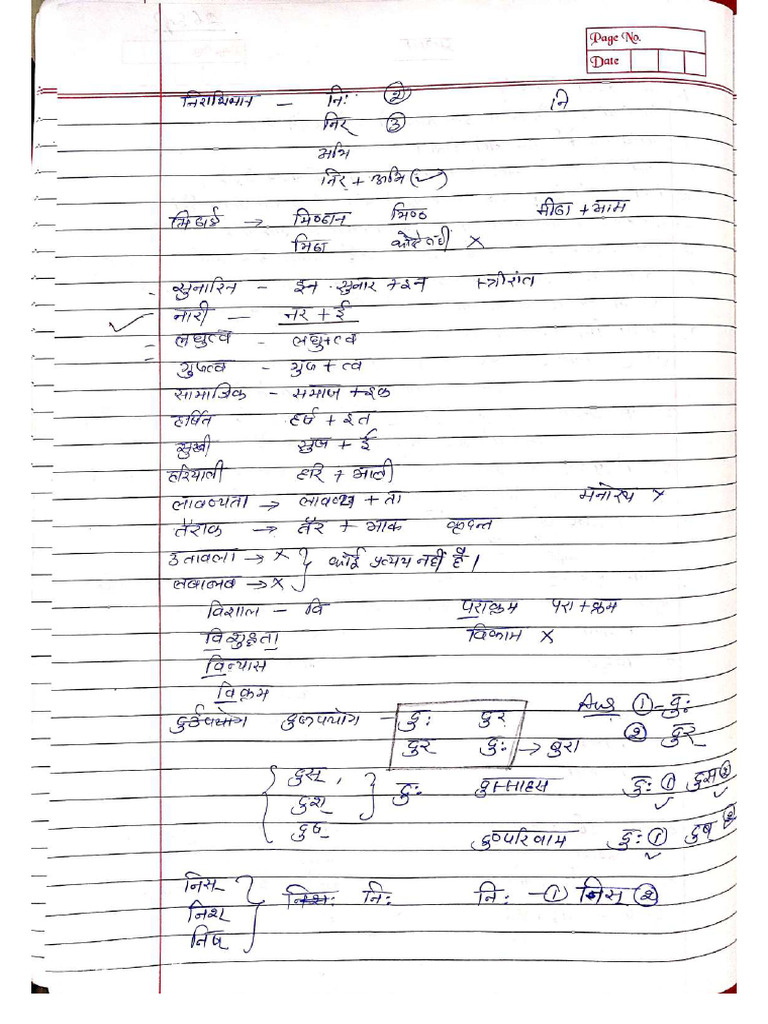 Page No.
Date
निराभिमान – निः ②
नि
निर् ③
अभि
निर + अभि (✓)
मिठाई → मिष्ठान मिष्ठ मीठा + आम
मिठा कोई नहीं ×
सुनारिन – इन सुनार + इन
नारी – नर + ई
लघुत्व – लघु+त्व
गुरुत्व – गुरु + त्व
सामाजिक – समाज + इक
हर्षित हर्ष + इत
सुखी सुख + ई
हरियाली हरि + आली
लावण्यता → लावण्य + ता
तैराक → तैर + आक कृदन्त
उतावला → × } कोई प्रत्यय नहीं है।
लबालब → ×
विशाल – वि पराक्रम परा + क्रम
विशुद्धता विक्राम ×
विन्यास
विक्रम
दुरुपयोग – दुः दुर Ans ① – दुः
दुर दुः → बुरा ② दुर्
दुस्,
दुश् } दुः दुस्साहस दुः ① दुस ②
दुष् दुष्परिणाम दुः ① दुष् ②
निस
निश् } निः निः – ① निस् ②
निष्